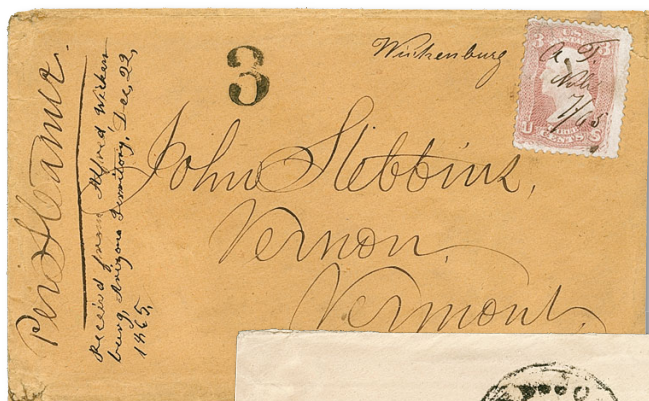 Per Steamer.
Received from Alfred Wicken
burg, Arizona Territory, Dec, 22,
1865,
3
Wickenburg
3 U.S. 3
A. T.
Nov
7/65
U THREE S
CENTS
John Stebbins,
Vernon,
Vermont,